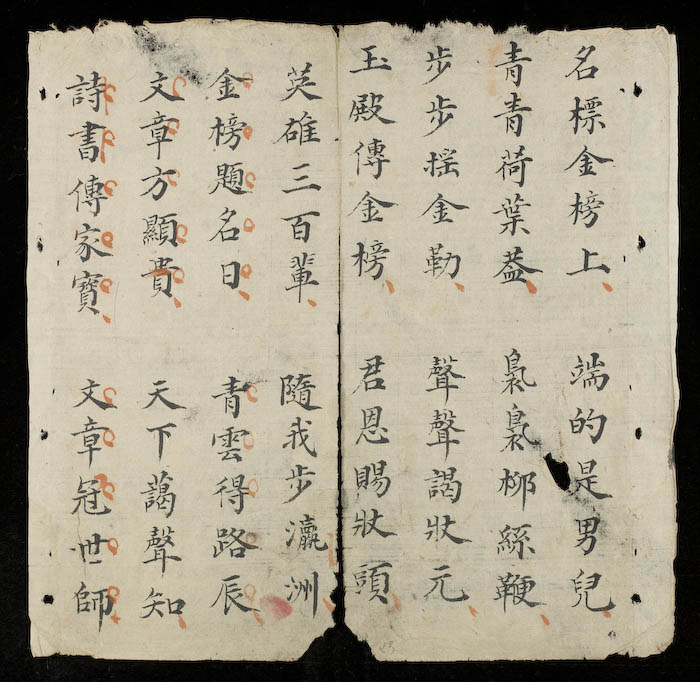 名標金榜上 端的是男兒
青青荷葉葢 裊裊柳絲鞭
步步揺金勒 聲聲謁狀元
玉殿傳金榜 君恩賜狀頭
英雄三百輩 隨我步瀛洲
金榜題名日 青雲得路辰
文章方顯貴 天下藹聲知
詩書傳家寶 文章冠世師